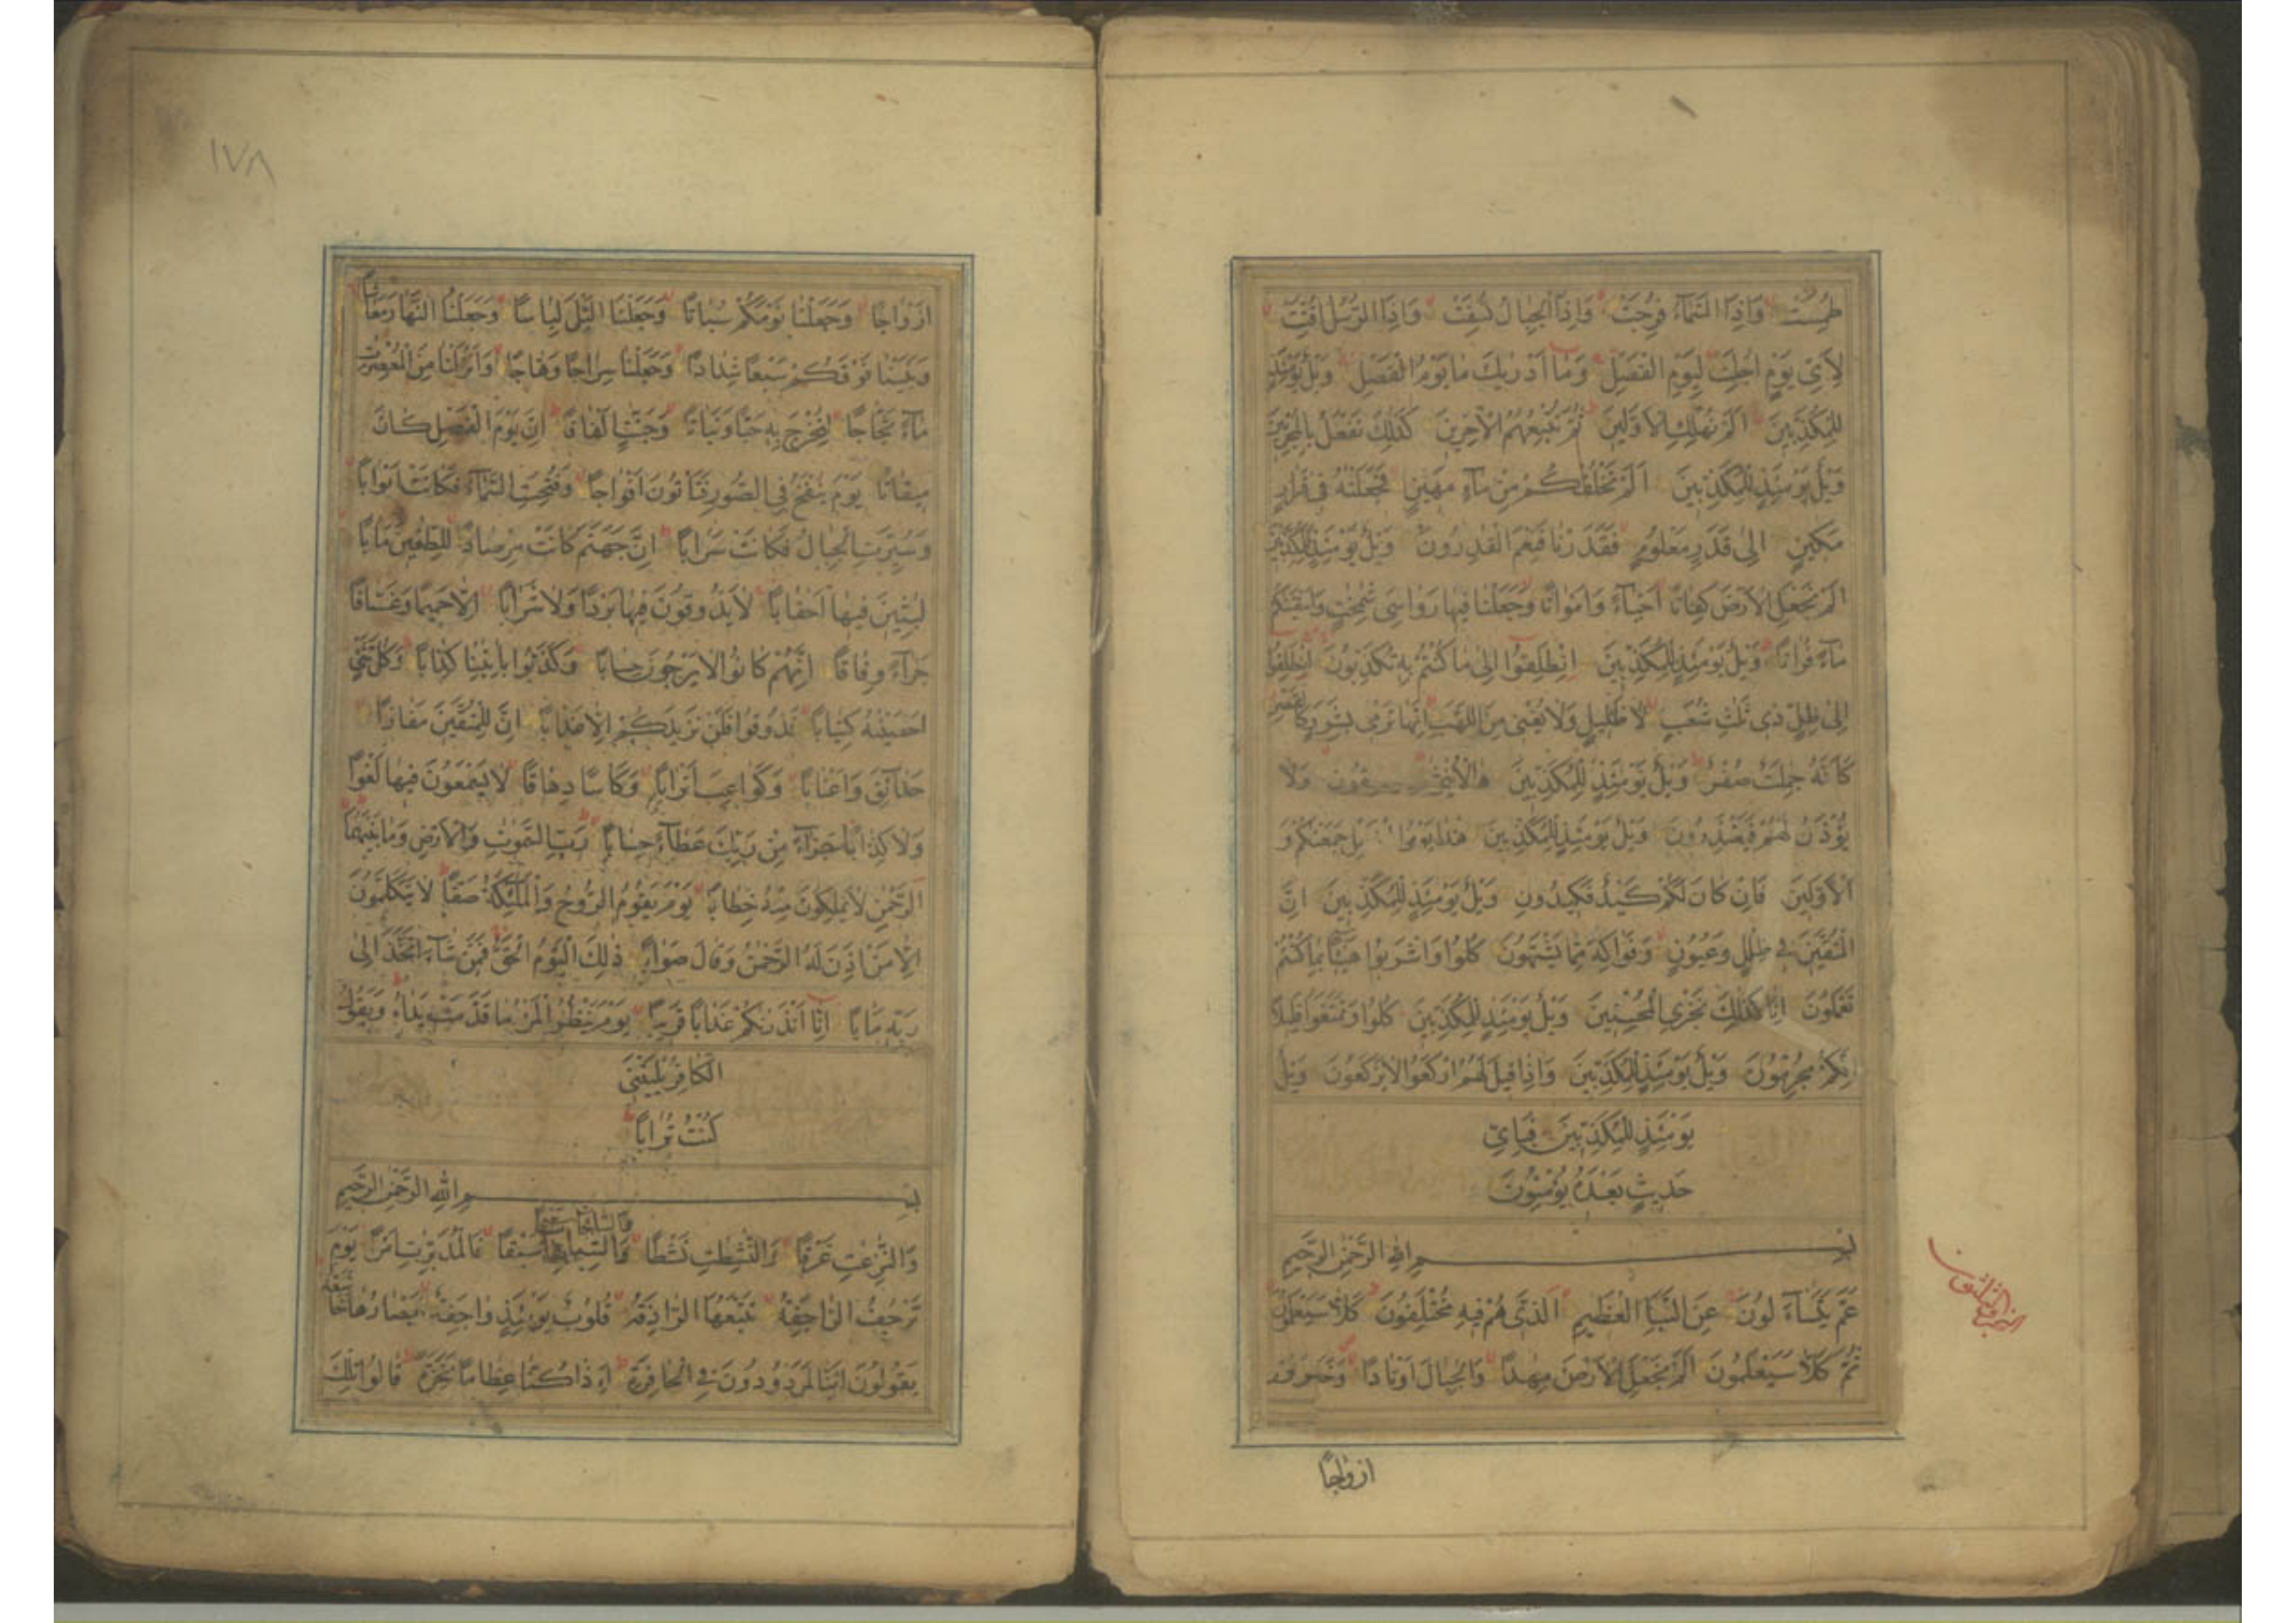 طُمِسَتْ وَاِذَا السَّمَآءُ فُرِجَتْ وَاِذَا الْجِبَالُ نُسِفَتْ وَاِذَا الرُّسُلُ اُقِّتَتْ
لِاَىِّ يَوْمٍ اُجِّلَتْ لِيَوْمِ الْفَصْلِ وَمَا اَدْرٰيكَ مَا يَوْمُ الْفَصْلِ وَيْلٌ يَوْمَئِذٍ
لِلْمُكَذِّبِينَ اَلَمْ نُهْلِكِ الْاَوَّلِينَ ثُمَّ نُتْبِعُهُمُ الْاٰخِرِينَ كَذٰلِكَ نَفْعَلُ بِالْمُجْرِمِينَ
وَيْلٌ يَوْمَئِذٍ لِلْمُكَذِّبِينَ اَلَمْ نَخْلُقْكُمْ مِنْ مَآءٍ مَهِينٍ فَجَعَلْنٰهُ فِى قَرَارٍ
مَكِينٍ اِلٰى قَدَرٍ مَعْلُومٍ فَقَدَرْنَا فَنِعْمَ الْقٰدِرُونَ وَيْلٌ يَوْمَئِذٍ لِلْمُكَذِّبِينَ
اَلَمْ نَجْعَلِ الْاَرْضَ كِفَاتًا اَحْيَآءً وَاَمْوَاتًا وَجَعَلْنَا فِيهَا رَوَاسِىَ شٰمِخٰتٍ وَاَسْقَيْنٰكُمْ
مَآءً فُرَاتًا وَيْلٌ يَوْمَئِذٍ لِلْمُكَذِّبِينَ اِنْطَلِقُوا اِلٰى مَا كُنْتُمْ بِهِ تُكَذِّبُونَ اِنْطَلِقُوا
اِلٰى ظِلٍّ ذِى ثَلٰثِ شُعَبٍ لَا ظَلِيلٍ وَلَا يُغْنِى مِنَ اللَّهَبِ اِنَّهَا تَرْمِى بِشَرَرٍ كَالْقَصْرِ
كَاَنَّهُ جِمٰلَتٌ صُفْرٌ وَيْلٌ يَوْمَئِذٍ لِلْمُكَذِّبِينَ وَلَا
يُؤْذَنُ لَهُمْ فَيَعْتَذِرُونَ وَيْلٌ يَوْمَئِذٍ لِلْمُكَذِّبِينَ هٰذَا يَوْمُ جَمَعْنٰكُمْ وَ
الْاَوَّلِينَ فَاِنْ كَانَ لَكُمْ كَيْدٌ فَكِيدُونِ وَيْلٌ يَوْمَئِذٍ لِلْمُكَذِّبِينَ اِنَّ
الْمُتَّقِينَ فِى ظِلٰلٍ وَعُيُونٍ وَفَوَاكِهَ مِمَّا يَشْتَهُونَ كُلُوا وَاشْرَبُوا هَنِيئًا بِمَا كُنْتُمْ
تَعْمَلُونَ اِنَّا كَذٰلِكَ نَجْزِى الْمُحْسِنِينَ وَيْلٌ يَوْمَئِذٍ لِلْمُكَذِّبِينَ كُلُوا وَتَمَتَّعُوا قَلِيلًا
اِنَّكُمْ مُجْرِمُونَ وَيْلٌ يَوْمَئِذٍ لِلْمُكَذِّبِينَ وَاِذَا قِيلَ لَهُمُ ارْكَعُوا لَا يَرْكَعُونَ وَيْلٌ
يَوْمَئِذٍ لِلْمُكَذِّبِينَ فَبِاَىِّ
حَدِيثٍ بَعْدَهُ يُؤْمِنُونَ
بِسْمِ اللهِ الرَّحْمٰنِ الرَّحِيمِ
عَمَّ يَتَسَآءَلُونَ عَنِ النَّبَاِ الْعَظِيمِ الَّذِى هُمْ فِيهِ مُخْتَلِفُونَ كَلَّا سَيَعْلَمُونَ
ثُمَّ كَلَّا سَيَعْلَمُونَ اَلَمْ نَجْعَلِ الْاَرْضَ مِهٰدًا وَالْجِبَالَ اَوْتَادًا وَخَلَقْنٰكُمْ
ازواجًا
١٧٨
اَزْوَاجًا وَجَعَلْنَا نَوْمَكُمْ سُبَاتًا وَجَعَلْنَا الَّيْلَ لِبَاسًا وَجَعَلْنَا النَّهَارَ مَعَاشًا
وَبَنَيْنَا فَوْقَكُمْ سَبْعًا شِدَادًا وَجَعَلْنَا سِرَاجًا وَهَّاجًا وَاَنْزَلْنَا مِنَ الْمُعْصِرٰتِ
مَآءً ثَجَّاجًا لِنُخْرِجَ بِهِ حَبًّا وَنَبَاتًا وَجَنّٰتٍ اَلْفَافًا اِنَّ يَوْمَ الْفَصْلِ كَانَ
مِيقَاتًا يَوْمَ يُنْفَخُ فِى الصُّورِ فَتَاْتُونَ اَفْوَاجًا وَفُتِحَتِ السَّمَآءُ فَكَانَتْ اَبْوَابًا
وَسُيِّرَتِ الْجِبَالُ فَكَانَتْ سَرَابًا اِنَّ جَهَنَّمَ كَانَتْ مِرْصَادًا لِلطّٰغِينَ مَاٰبًا
لٰبِثِينَ فِيهَا اَحْقَابًا لَا يَذُوقُونَ فِيهَا بَرْدًا وَلَا شَرَابًا اِلَّا حَمِيمًا وَغَسَّاقًا
جَزَآءً وِفَاقًا اِنَّهُمْ كَانُوا لَا يَرْجُونَ حِسَابًا وَكَذَّبُوا بِاٰيٰتِنَا كِذَّابًا وَكُلَّ شَىْءٍ
اَحْصَيْنٰهُ كِتَابًا فَذُوقُوا فَلَنْ نَزِيدَكُمْ اِلَّا عَذَابًا اِنَّ لِلْمُتَّقِينَ مَفَازًا
حَدَآئِقَ وَاَعْنَابًا وَكَوَاعِبَ اَتْرَابًا وَكَاْسًا دِهَاقًا لَا يَسْمَعُونَ فِيهَا لَغْوًا
وَلَا كِذَّابًا جَزَآءً مِنْ رَبِّكَ عَطَآءً حِسَابًا رَبِّ السَّمٰوٰتِ وَالْاَرْضِ وَمَا بَيْنَهُمَا
الرَّحْمٰنِ لَا يَمْلِكُونَ مِنْهُ خِطَابًا يَوْمَ يَقُومُ الرُّوحُ وَالْمَلٰئِكَةُ صَفًّا لَا يَتَكَلَّمُونَ
اِلَّا مَنْ اَذِنَ لَهُ الرَّحْمٰنُ وَقَالَ صَوَابًا ذٰلِكَ الْيَوْمُ الْحَقُّ فَمَنْ شَآءَ اتَّخَذَ اِلٰى
رَبِّهِ مَاٰبًا اِنَّا اَنْذَرْنٰكُمْ عَذَابًا قَرِيبًا يَوْمَ يَنْظُرُ الْمَرْءُ مَا قَدَّمَتْ يَدَاهُ وَيَقُولُ
الْكَافِرُ يٰلَيْتَنِى
كُنْتُ تُرَابًا
بِسْمِ اللهِ الرَّحْمٰنِ الرَّحِيمِ
وَالنّٰزِعٰتِ غَرْقًا وَالنّٰشِطٰتِ نَشْطًا سَبْقًا فَالْمُدَبِّرٰتِ اَمْرًا يَوْمَ
تَرْجُفُ الرَّاجِفَةُ تَتْبَعُهَا الرَّادِفَةُ قُلُوبٌ يَوْمَئِذٍ وَاجِفَةٌ اَبْصَارُهَا خَاشِعَةٌ
يَقُولُونَ اَئِنَّا لَمَرْدُودُونَ فِى الْحَافِرَةِ اَءِذَا كُنَّا عِظَامًا نَخِرَةً قَالُوا تِلْكَ